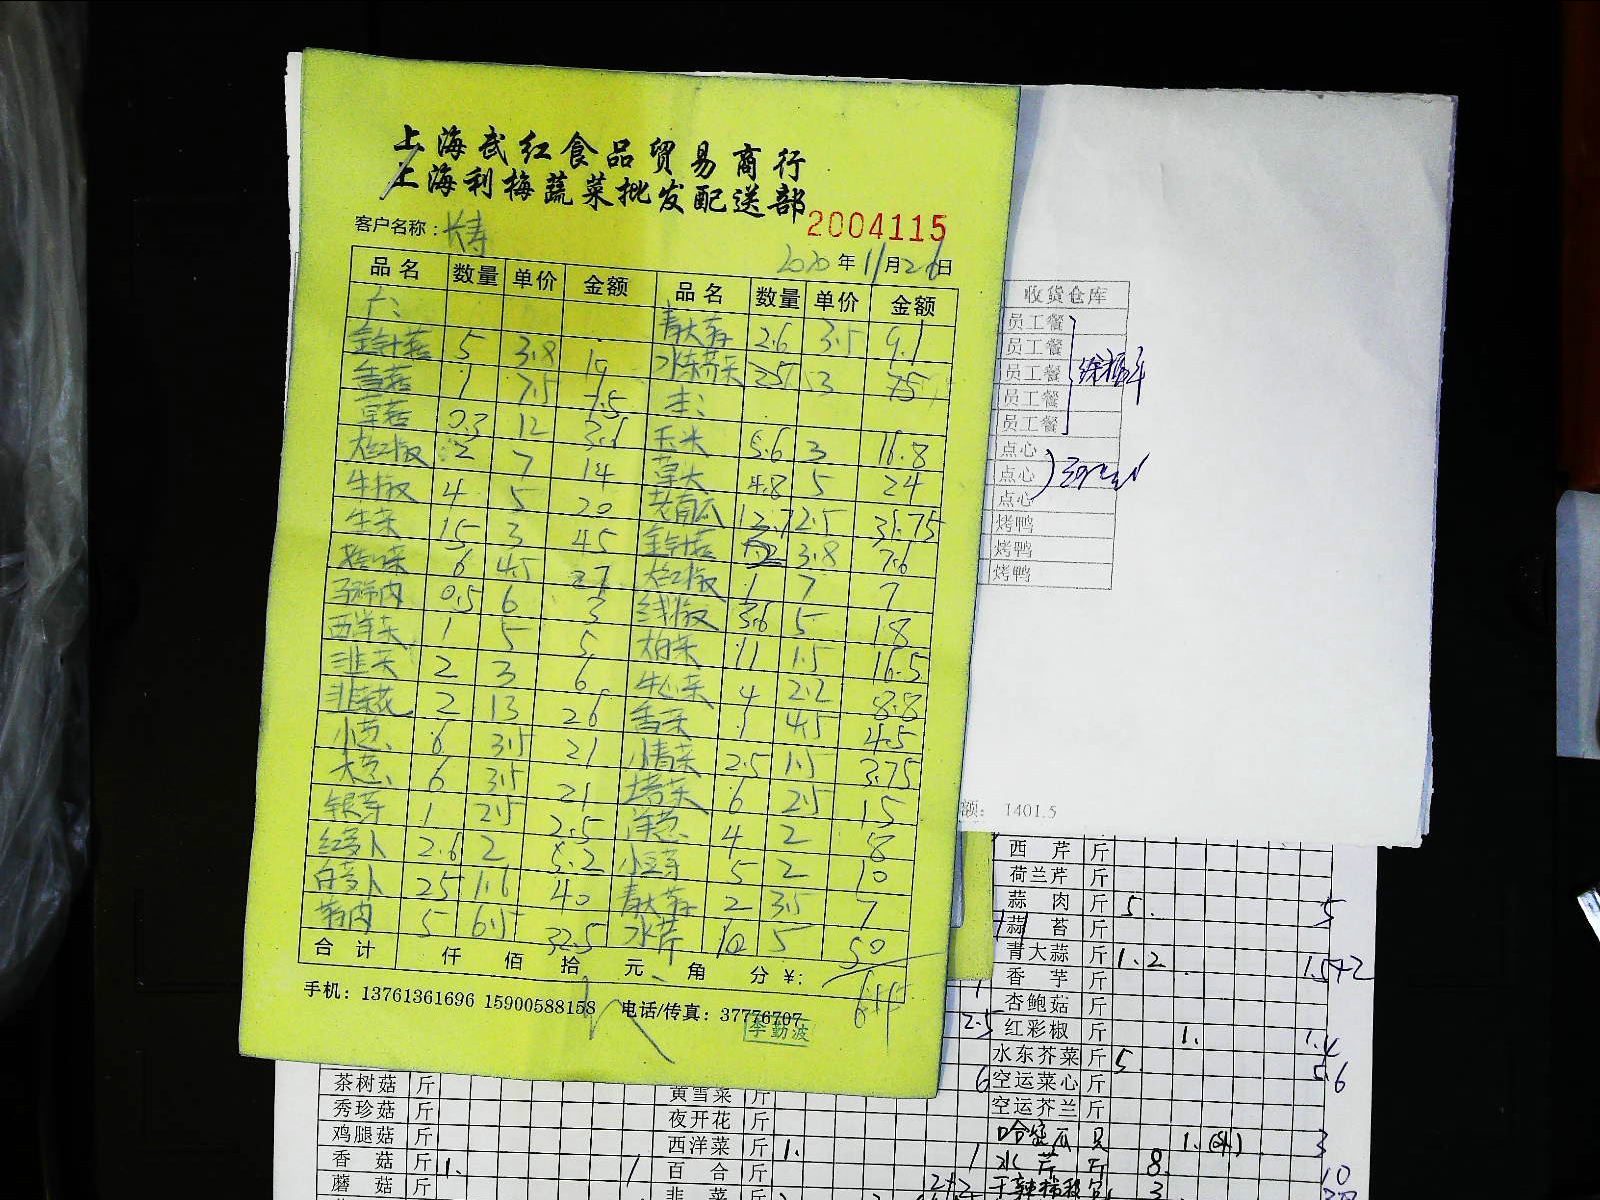 上海武红食品贸易商行
上海利梅蔬菜批发配送部
2004115
客户名称：长寿
2020年11月26日
品名 数量 单价 金额 品名 数量 单价 金额
青大蒜 2.6 3.5 9.1
金针菇 5 3.8 19 水东芥菜 25 3 75
香菇 1 7.5 7.5
草菇 0.3 12 3.6 玉米 5.6 3 16.8
大红椒 2 7 14 草头 4.8 5 24
牛椒 4 5 20 老南瓜 12.7 2.5 31.75
生菜 15 3 45 金针菇 2 3.8 7.6
6 4.5 27 大红椒 1 7 7
0.5 6 3 线椒 3.6 5 18
西洋菜 1 5 5 大白菜 11 1.5 16.5
韭菜 2 3 6 牛心菜 4 2.2 8.8
韭菜花 2 13 26 香菜 1 4.5 4.5
小葱 6 3.5 21 小青菜 2.5 1.5 3.75
大葱 6 3.5 21 塔菜 6 2.5 15
银芽 1 2.5 2.5 洋葱 4 2 8
红萝卜 2.6 2 5.2 小豆芽 5 2 10
白萝卜 25 1.6 40 青大蒜 2 3.5 7
蒜肉 5 6.5 32.5 水芹 10 5 50
合计 仟 佰 拾 元 角 分 ¥:
手机：13761361696 15900588158 电话/传真：37776707
李勤波
收货仓库
员工餐
员工餐
员工餐
员工餐
员工餐
点心
点心
点心
烤鸭
烤鸭
烤鸭
额： 1401.5
西芹 斤
荷兰芹 斤
蒜肉 斤 5. 5
蒜苔 斤
青大蒜 斤 1.2 1.5+2
香芋 斤
杏鲍菇 斤
红彩椒 斤 1. 1.4
水东芥菜 斤 5. 5.6
空运菜心 斤
空运芥兰 斤
哈密瓜 只 1. 3
水芹 斤 8. 10
茶树菇 斤
秀珍菇 斤
鸡腿菇 斤
香菇 斤 1. 1
蘑菇 斤
黄雪菜 斤
夜开花 斤
西洋菜 斤 1. 1
百合 斤
韭菜 斤